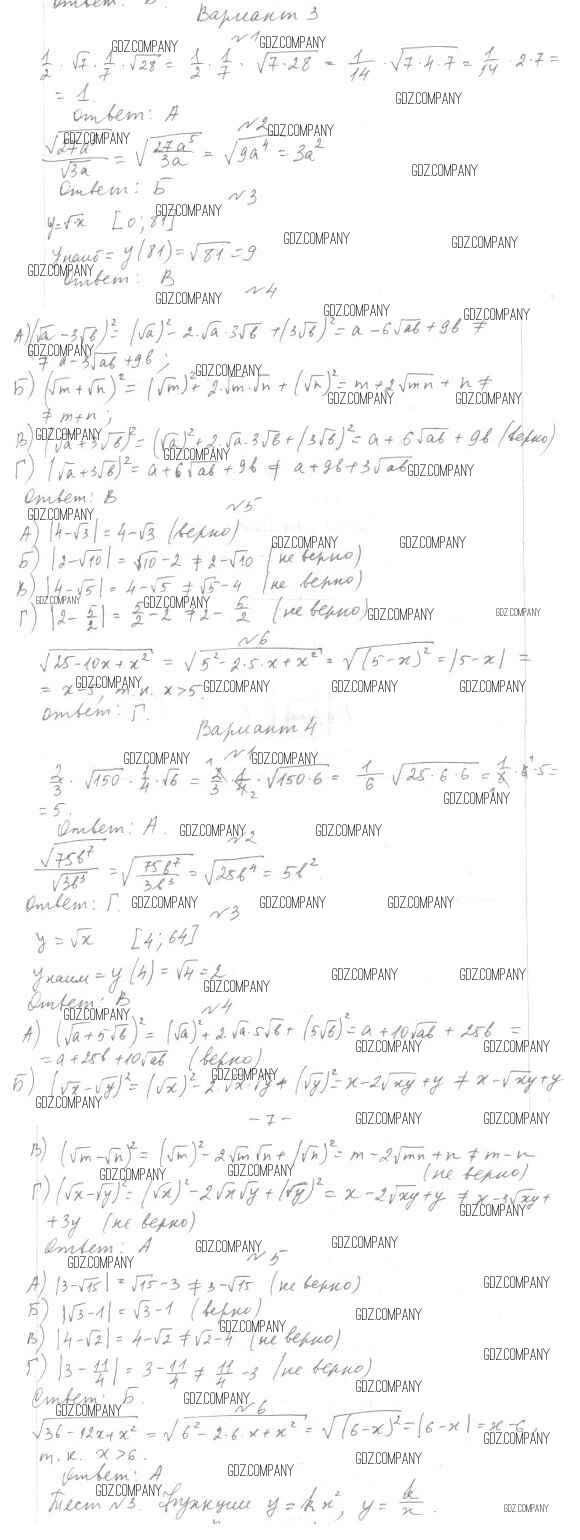 Ответ: В.
Вариант 3
№1
1/2 · √7 · 1/7 · √28 = 1/2 · 1/7 · √(7·28) = 1/14 · √(7·4·7) = 1/14 · 2·7 =
= 1.
Ответ: А
№2
√(27a⁵)/√(3a) = √(27a⁵/3a) = √(9a⁴) = 3a²
Ответ: Б
№3
y=√x [0; 81]
y наиб = y(81) = √81 = 9
Ответ: В
№4
А) (√a − 3√b)² = (√a)² − 2·√a·3√b + (3√b)² = a − 6√ab + 9b ≠
≠ a − 3√ab + 9b;
Б) (√m + √n)² = (√m)² + 2·√m·√n + (√n)² = m + 2√mn + n ≠
≠ m+n;
В) (√a + 3√b)² = (√a)² + 2·√a·3√b + (3√b)² = a + 6√ab + 9b (верно)
Г) (√a + 3√b)² = a + 6√ab + 9b ≠ a + 9b + 3√ab
Ответ: В
№5
А) |4−√3| = 4−√3 (верно)
Б) |2−√10| = √10−2 ≠ 2−√10 (не верно)
В) |4−√5| = 4−√5 ≠ √5−4 (не верно)
Г) |2−5/2| = 5/2−2 ≠ 2−5/2 (не верно)
№6
√(25−10x+x²) = √(5²−2·5·x+x²) = √((5−x)²) = |5−x| =
= x−5, т.к. x>5.
Ответ: Г.
Вариант 4
№1
2/3 · √150 · 1/4 · √6 = 2/3 · 1/4 · √(150·6) = 1/6 √(25·6·6) = 1/6 · 6·5 =
= 5.
Ответ: А.
№2
√(75b⁷)/√(3b³) = √(75b⁷/3b³) = √(25b⁴) = 5b².
Ответ: Г.
№3
y = √x [4; 64]
y наим = y(4) = √4 = 2
Ответ: В
№4
А) (√a + 5√b)² = (√a)² + 2·√a·5√b + (5√b)² = a + 10√ab + 25b =
= a + 25b + 10√ab (верно)
Б) (√x − √y)² = (√x)² − 2·√x·√y + (√y)² = x − 2√xy + y ≠ x − √xy + y
– 7 –
В) (√m − √n)² = (√m)² − 2√m√n + (√n)² = m − 2√mn + n ≠ m − n
(не верно)
Г) (√x − √y)² = (√x)² − 2√x√y + (√y)² = x − 2√xy + y ≠ x − 3√xy +
+ 3y (не верно)
Ответ: А
№5
А) |3−√15| = √15−3 ≠ 3−√15 (не верно)
Б) |√3−1| = √3−1 (верно)
В) |4−√2| = 4−√2 ≠ √2−4 (не верно)
Г) |3−11/4| = 3−11/4 ≠ 11/4−3 (не верно)
Ответ: Б.
№6
√(36−12x+x²) = √(6²−2·6·x+x²) = √((6−x)²) = |6−x| = x−6,
т.к. x>6.
Ответ: А
Тест №3. Функции y=kx², y=k/x.
GDZ.COMPANY